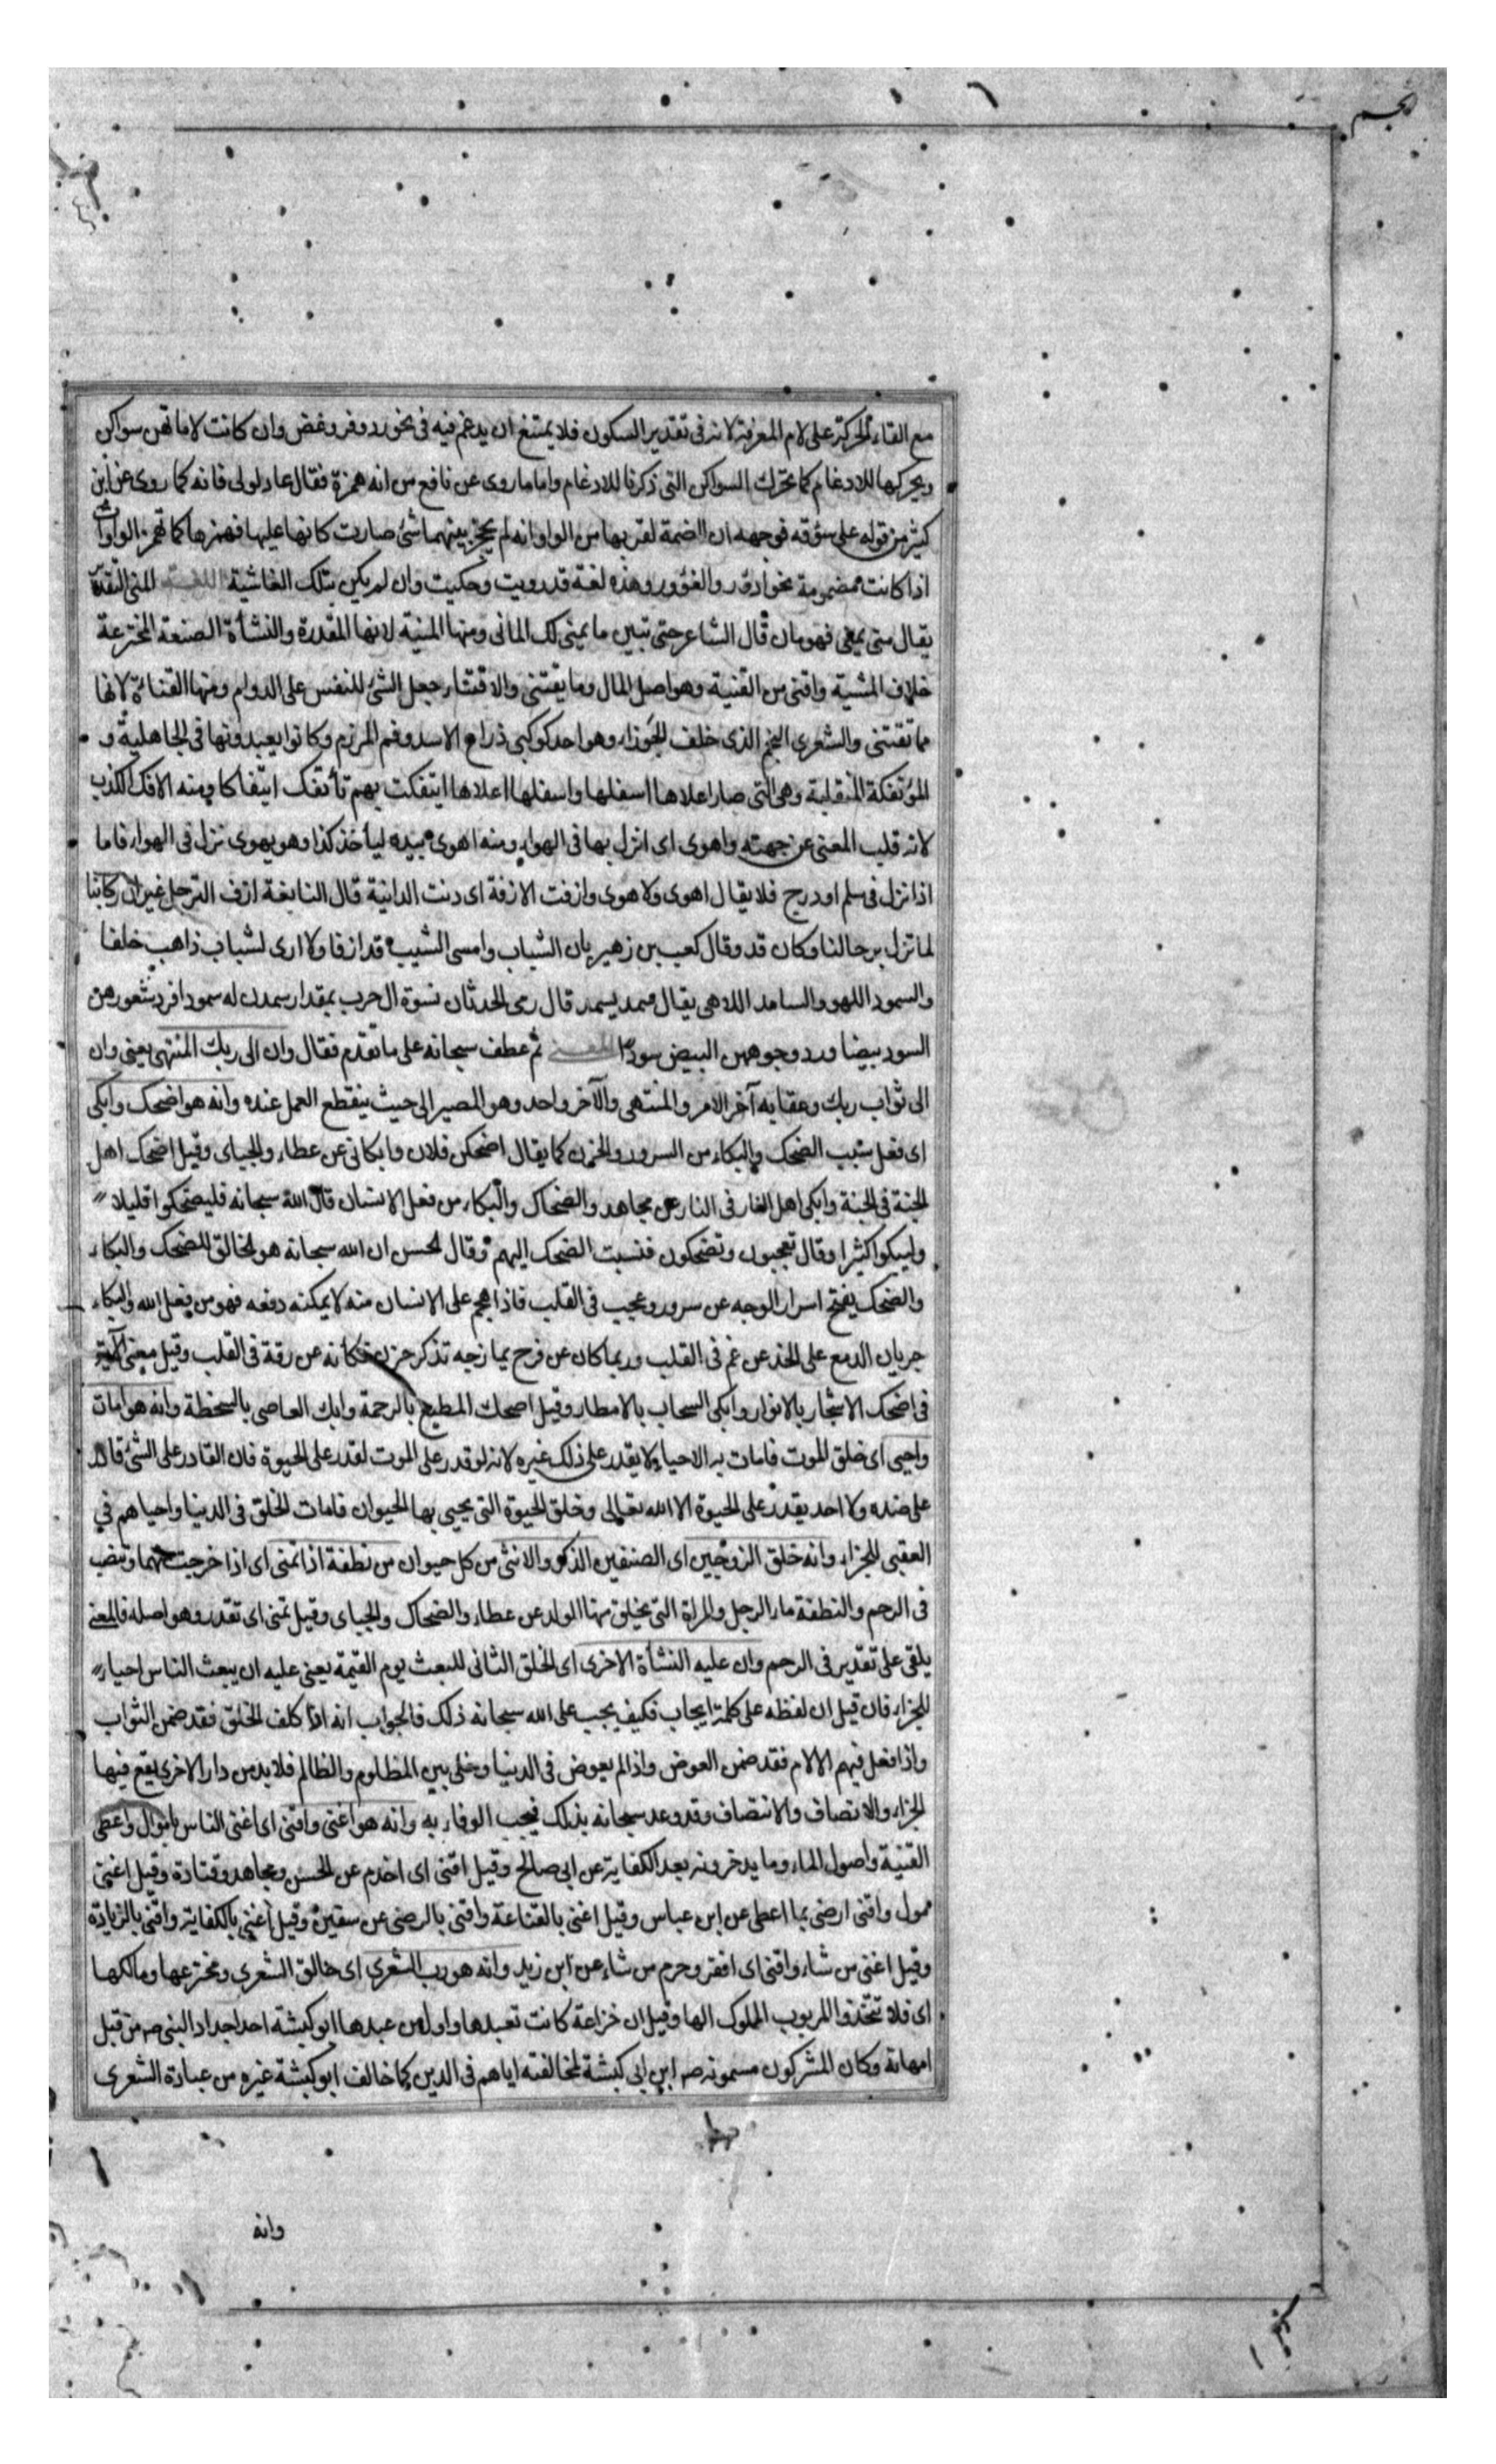 نجم
مع القاء الحركة على لام المعرفة لانه فى تقدير السكون فلا يمتنع ان يدغم فيه فى نحو رد وفر وغض وان كانت لاماتهن سواكن
ويحركها للادغام كما تحرك السواكن التى ذكرنا للادغام واما ما روى عن نافع من انه همزة فقال عاد لولى فانه كما روى عن ابن
كثير من قوله على سؤقه فوجهه ان الضمة لقربها من الواو انه لم يحجز بينهما شئ صارت كانها عليها فهمزها كما تهمز الواوات
اذا كانت مضمومة نحو ادؤر والغؤور وهذه لغة قد رويت وحكيت وان لم يكن بتلك الفاشية اللغة المنى التقدير
يقال منى يمنى فهو مان قال الشاعر حتى تبين ما يمنى لك المانى ومنها المنية لانها المقدرة والنشأة الصنعة المخترعة
خلاف المشية واقنى من القنية وهو اصل المال وما يقتنى والاقتناء جعل الشئ للنفس على الدوام ومنها القناة لانها
مما تقتنى والشعرى النجم الذى خلف الجوزاء وهو احد كوكبى ذراع الاسد وقم المرزم وكانوا يعبدونها فى الجاهلية و
المؤتفكة المنقلبة وهى التى صار اعلاها اسفلها واسفلها اعلاها ايتفكت بهم تأتفك ايتفاكا ومنه الافك الكذب
لانه قلب المعنى عن جهته واهوى اى انزل بها فى الهواء ومنه اهوى بيده ليأخذ كذا وهو يهوى نزل فى الهواء فاما
اذا نزل فى سلم او درج فلا يقال اهوى ولا هوى وازفت الازفة اى دنت الدانية قال النابغة ازف الترحل غير ان ركابنا
لما تزل برحالنا وكان قد وقال كعب بن زهير بان الشباب وامسى الشيب قد ازفا ولا ارى لشباب ذاهب خلفا
والسمود اللهو والسامد اللاهى يقال سمد يسمد قال رمى الحدثان نسوة ال حرب بمقدار سمدن له سمودا فرد شعورهن
السود بيضا ورد وجوههن البيض سودا المعنى ثم عطف سبحانه على ما تقدم فقال وان الى ربك المنتهى يعنى وان
الى ثواب ربك وعقابه آخر الامر والمنتهى والآخر واحد وهو المصير الى حيث ينقطع العمل عنده وانه هو اضحك وابكى
اى فعل سبب الضحك والبكاء من السرور والحزن كما يقال اضحكنى فلان وابكانى عن عطاء والجباى وقيل اضحك اهل
الجنة فى الجنة وابكى اهل النار فى النار عن مجاهد والضحاك والبكاء من فعل الانسان قال الله سبحانه فليضحكوا قليلا
وليبكوا كثيرا وقال تعجبون وتضحكون فنسبت الضحك اليهم وقال الحسن ان الله سبحانه هو الخالق للضحك والبكاء
والضحك يفتح اسرار الوجه عن سرور وعجب فى القلب فاذا هجم على الانسان منه لا يمكنه دفعه فهو من فعل الله والبكاء
جريان الدمع على الخد عن غم فى القلب وربما كان عن فرح يمازجه تذكر حزن فكانه عن رقة فى القلب وقيل معنى الآية
فى اضحك الاشجار بالانوار وابكى السحاب بالامطار وقيل اضحك المطيع بالرحمة وابك العاصى بالسخطة وانه هو امات
واحيى اى خلق الموت فامات به الاحياء ولا يقدر على ذلك غيره لانه لو قدر على الموت لقدر على الحيوة فان القادر على الشئ قادر
على ضده ولا احد يقدر على الحيوة الا الله تعالى وخلق الحيوة التى يحيى بها الحيوان فامات الخلق فى الدنيا واحياهم فى
العقبى للجزاء وانه خلق الزوجين اى الصنفين الذكر والانثى من كل حيوان من نطفة اذا تمنى اى اذا خرجت منهما وتنصب
فى الرحم والنطفة ماء الرجل والمراة التى يخلق منها الولد عن عطاء والضحاك والجباى وقيل تمنى اى تقدر وهو اصله فالمعنى
يلقى على تقدير فى الرحم وان عليه النشأة الاخرى اى الخلق الثانى للبعث يوم القيمة يعنى عليه ان يبعث الناس احياء
للجزاء فان قيل ان لفظه على كلمة ايجاب فكيف يجب على الله سبحانه ذلك فالجواب انه اذا كلف الخلق فقد ضمن الثواب
واذا فعل فيهم الالام فقد ضمن العوض واذا لم يعوض فى الدنيا وخلى بين المظلوم والظالم فلا بد من دار الاخرى يقع فيها
الجزاء والانصاف والانتصاف وقد وعد سبحانه بذلك فيجب الوفاء به وانه هو اغنى واقنى اى اغنى الناس بالاموال واعطى
القنية واصول الماء وما يدخرونه بعد الكفاية عن ابى صالح وقيل اقنى اى اخدم عن الحسن ومجاهد وقتادة وقيل اغنى
مول واقنى ارضى بما اعطى عن ابن عباس وقيل اغنى بالقناعة واقنى بالرضى عن سفين وقيل اغنى بالكفاية واقنى بالزيادة
وقيل اغنى من شاء واقنى اى افقر وحرم من شاء عن ابن زيد وانه هو رب الشعرى اى خالق الشعرى ومخترعها ومالكها
اى فلا تتخذوا المربوب المملوك الها وقيل ان خزاعة كانت تعبدها واول من عبدها ابو كبشة احد اجداد النبى صم من قبل
امهاته وكان المشركون مسمونه صم ابن ابى كبشة لمخالفته اياهم فى الدين كما خالف ابو كبشة غيره من عبادة الشعرى
وانه